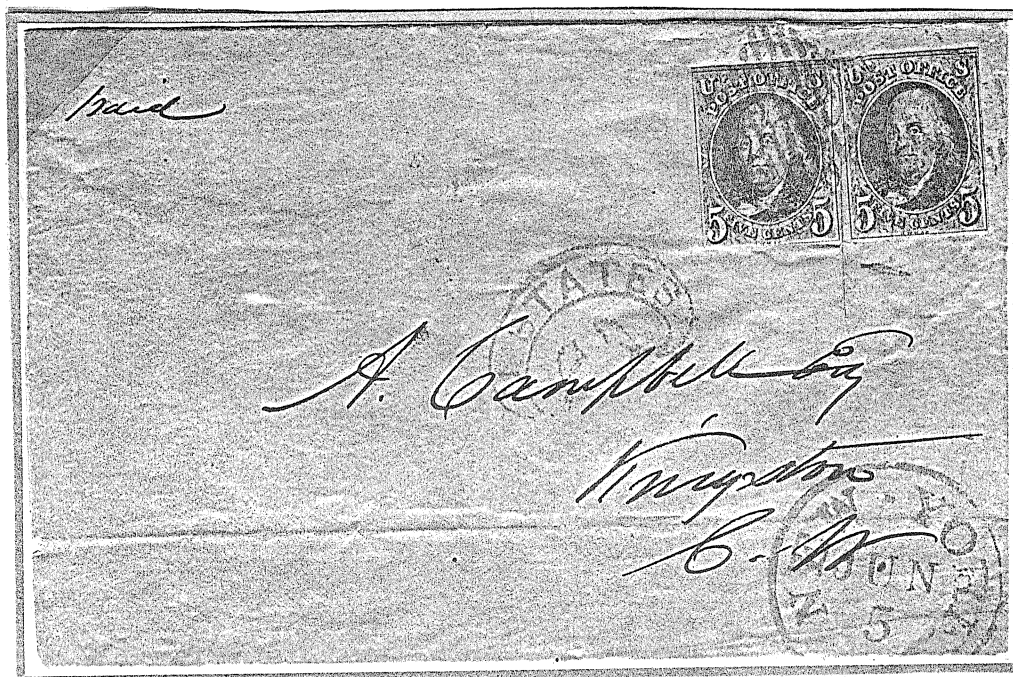 paid
U S
POST OFFICE
5 FIVE CENTS 5
U S
POST OFFICE
5 FIVE CENTS 5
STATES
A. Campbell Esq
Kingston
C. W
NEW-YORK
JUN
5